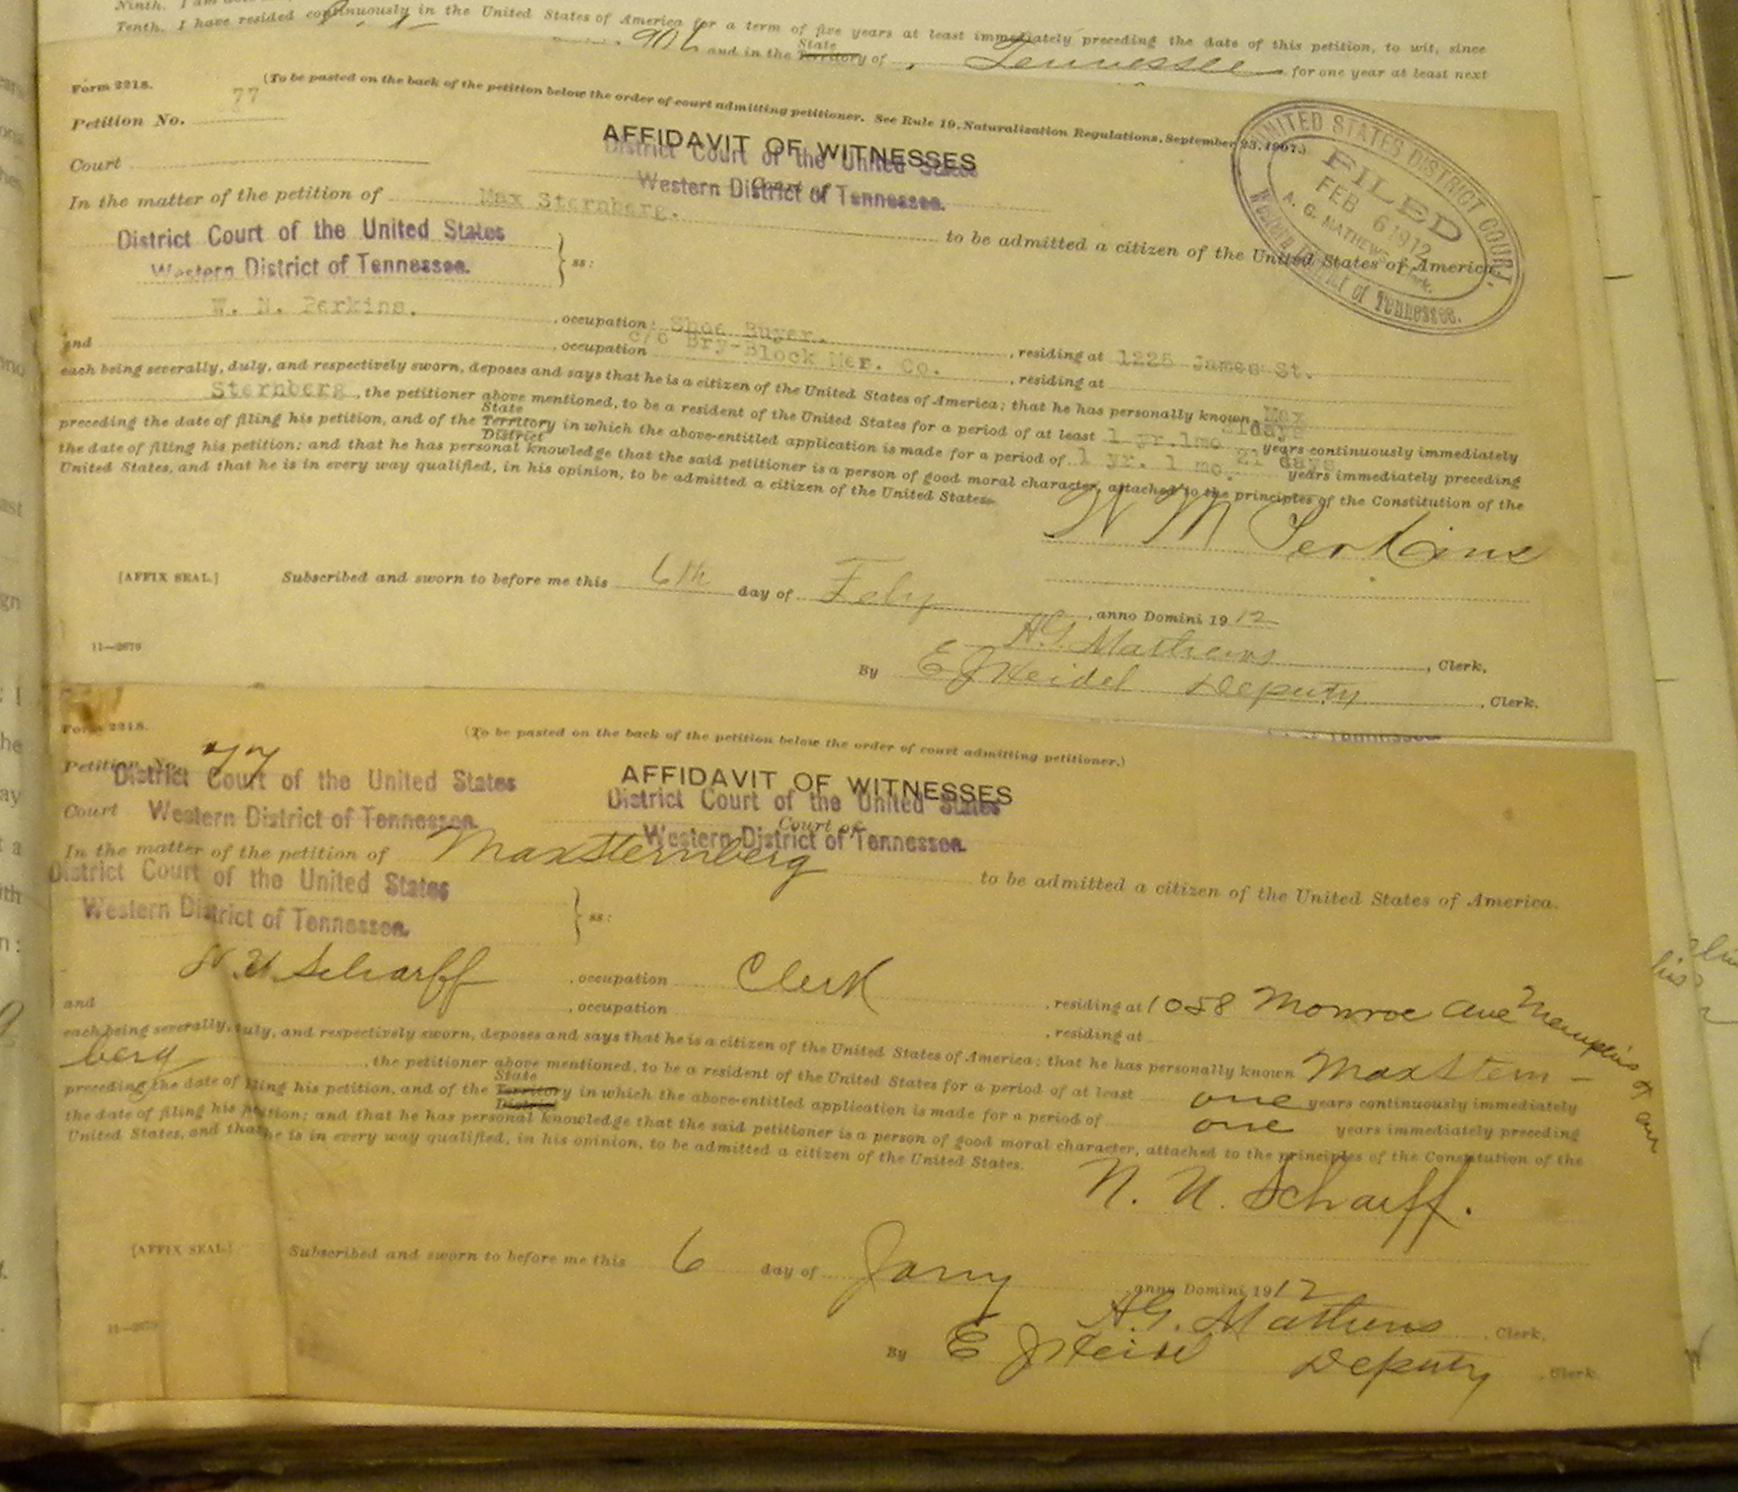 Ninth. I am
Tenth. I have resided continuously in the United States of America for a term of five years at least immediately preceding the date of this petition, to wit, since
and in the State Territory of Tennessee for one year at least next
Form 2218.
(To be pasted on the back of the petition below the order of court admitting petitioner. See Rule 19, Naturalization Regulations, September 23, 1907.)
Petition No. 77
AFFIDAVIT OF WITNESSES
District Court of the United States
Court
Court of
Western District of Tennessee.
In the matter of the petition of Max Sternberg. to be admitted a citizen of the United States of America.
UNITED STATES DISTRICT COURT.
FILED
FEB 6 1912
A. G. MATHEWS, Clerk.
Western District of Tennessee.
District Court of the United States
Western District of Tennessee.
ss:
W. N. Perkins. , occupation: Shoe Buyer. , residing at 1225 James St.
c/o Bry-Block Mer. Co.
and , occupation , residing at
each being severally, duly, and respectively sworn, deposes and says that he is a citizen of the United States of America; that he has personally known Max
Sternberg , the petitioner above mentioned, to be a resident of the United States for a period of at least 1 yr. 1 mo 21 days years continuously immediately
preceding the date of filing his petition, and of the State Territory District in which the above-entitled application is made for a period of 1 yr. 1 mo. 21 days years immediately preceding
the date of filing his petition; and that he has personal knowledge that the said petitioner is a person of good moral character, attached to the principles of the Constitution of the
United States, and that he is in every way qualified, in his opinion, to be admitted a citizen of the United States.
W M Perkins
[AFFIX SEAL.] Subscribed and sworn to before me this 6th day of Feby , anno Domini 1912
A G Mathews , Clerk.
11—2679
By E J Heidel Deputy , Clerk.
Form 2218.
(To be pasted on the back of the petition below the order of court admitting petitioner.)
Petition No. 77
District Court of the United States
AFFIDAVIT OF WITNESSES
District Court of the United States
Court Western District of Tennessee.
Court of
Western District of Tennessee.
In the matter of the petition of Max Sternberg to be admitted a citizen of the United States of America.
District Court of the United States
Western District of Tennessee.
ss:
N. U Scharff , occupation Clerk , residing at 1058 Monroe Ave Memphis
and , occupation , residing at
each being severally, duly, and respectively sworn, deposes and says that he is a citizen of the United States of America; that he has personally known Max Stern-
berg , the petitioner above mentioned, to be a resident of the United States for a period of at least one years continuously immediately
preceding the date of filing his petition, and of the State Territory District in which the above-entitled application is made for a period of one years immediately preceding
the date of filing his petition; and that he has personal knowledge that the said petitioner is a person of good moral character, attached to the principles of the Constitution of the
United States, and that he is in every way qualified, in his opinion, to be admitted a citizen of the United States.
N. U. Scharff.
[AFFIX SEAL.] Subscribed and sworn to before me this 6 day of Jany , anno Domini 1912
A.G. Mathews , Clerk.
11—2679
By E J Heidel Deputy , Clerk.